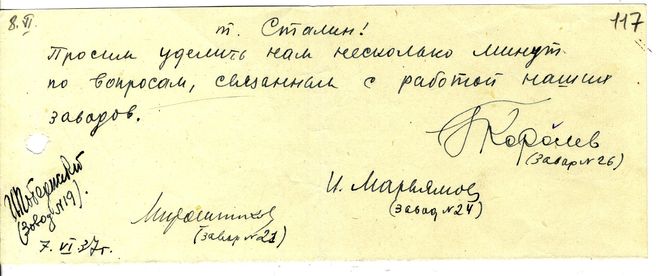 8.VI
117
т. Сталин!
Просим уделить нам несколько минут
по вопросам, связанным с работой наших
заводов.
Королев
(Завод N 26)
И. Марьямов
(Завод N 24)
Мирошников
(Завод N 21)
И Побережский
(Завод N 19).
7. VI 37г.